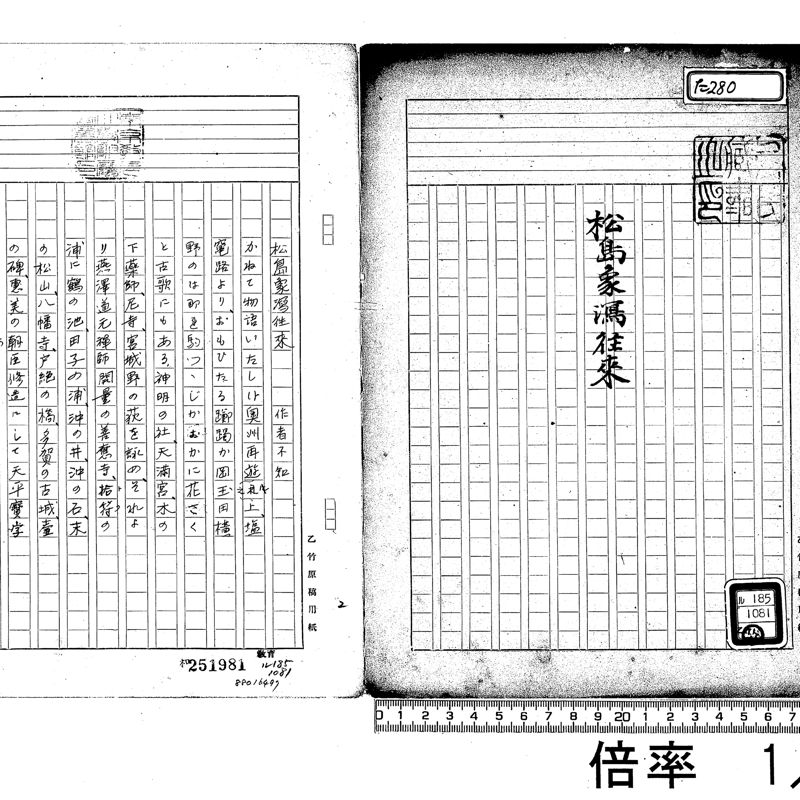 た280
松島象潟往来
ル 185
1081
松島象潟往来　作者不知
かねて物語いたし候奥州再遊之礼上、塩
竈路より、おもひたる躑躅か岡玉田横
野のはなれ駒つゝじかおかに花さく
と古歌にもある、神明の社、天満宮、木の
下薬師、尼寺、宮城野の萩を詠め、それよ
り燕澤道元禅師開量の善應寺、拾符の
浦に鶴の池、田子の浦、沖の井、沖の石、末
の松山、八幡寺、戸絶の橋、多賀の古城、壷
の碑、恵美の朝臣修造にして天平寶字
乙竹原稿用紙
2
教育
251981
ル185
1081
88016497
0 1 2 3 4 5 6 7 8 9 20 1 2 3 4 5 6 7
倍率 1